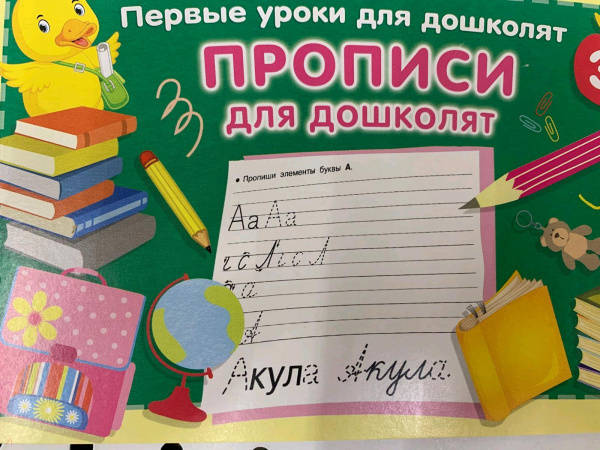 Первые уроки для дошколят
ПРОПИСИ
для дошколят
• Пропиши элементы буквы А.
Аа Аа
а
А
Акула Акула